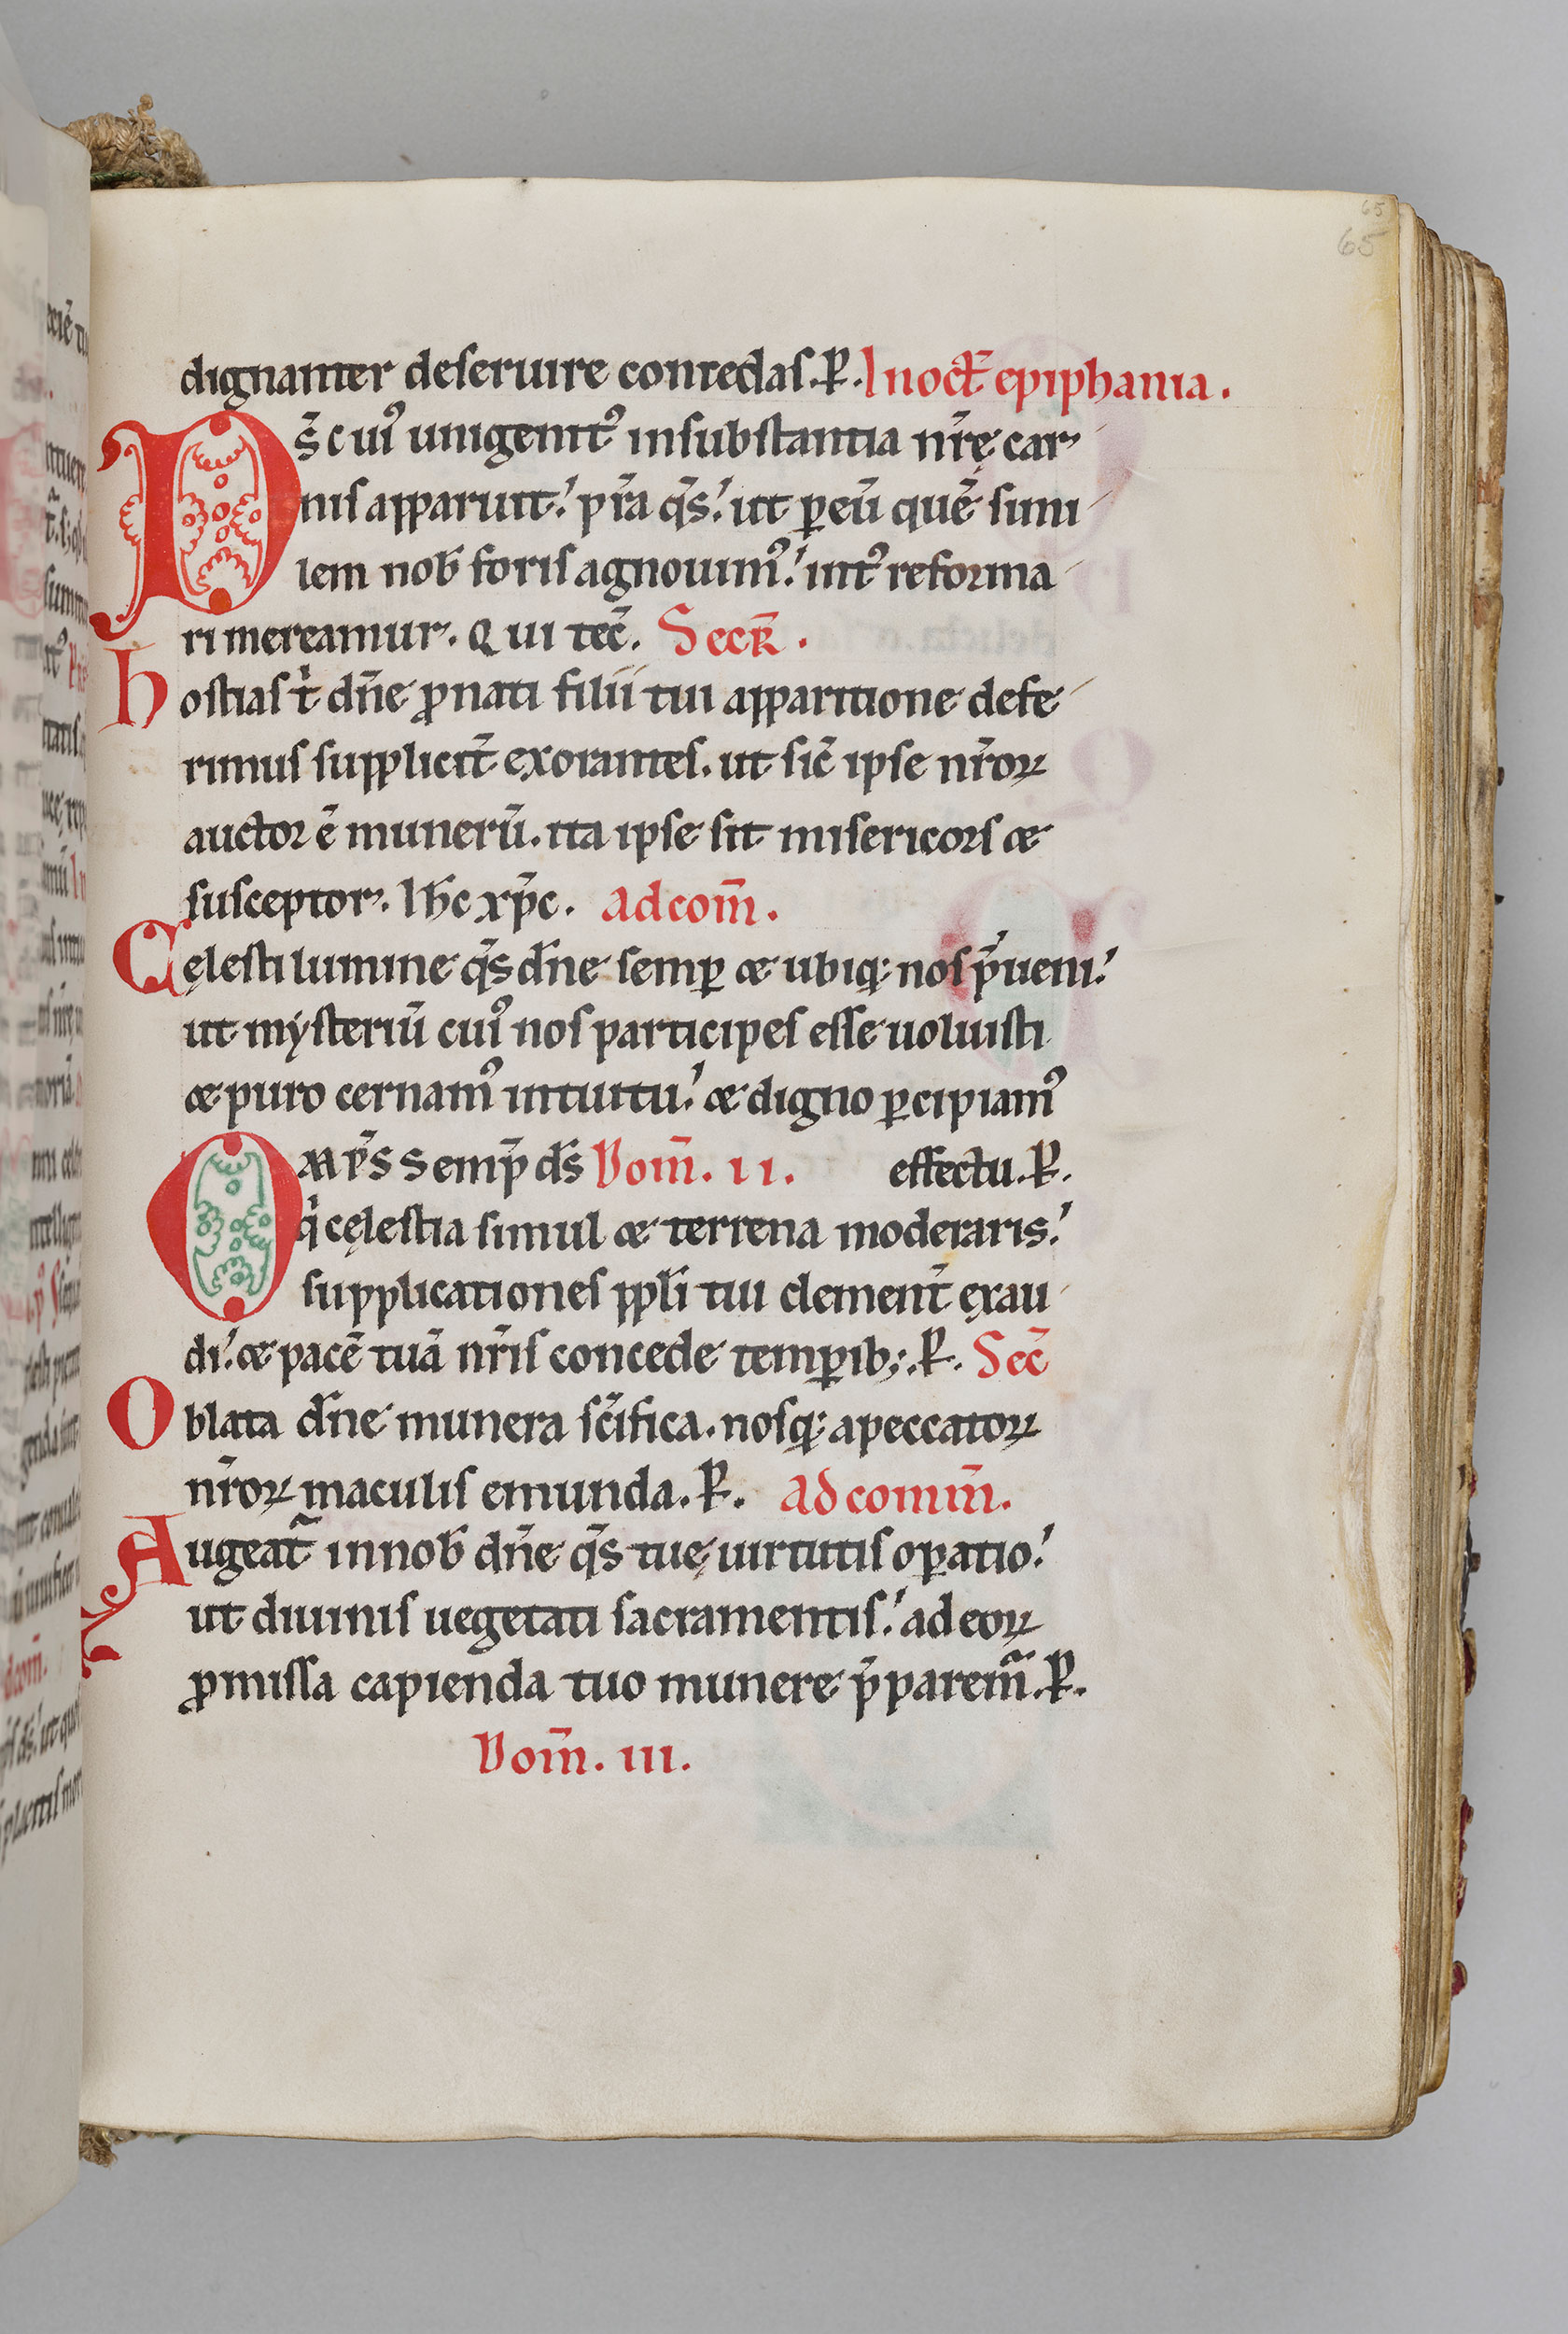 65
65
dignanter deseruire concedas. P̄. In oct̄ epiphania.
Ds̄ cui᷒ unigenit᷒ in substantia nr̄ę car
nis apparuit! pr̄a q̄s! ut ꝑ eū quē simi
lem nob̄ foris agnouim᷒! int᷒ reforma
ri mereamur. Qui tec̄. Secr̄.
hostias t̍ dn̄e ꝓ nati filii tui apparitione defe
rimus supplicit̄ exorantes. ut sic̄ ipse nr̄oꝝ
auctor ē munerū. ita ipse sit misericors &
susceptor. Ih̄c xp̄c. ad com̄.
Cęlesti lumine q̄s dn̄e semꝑ & ubiq; nos p̄ueni!
ut mẏsteriū cui᷒ nos participes esse uoluisti
& puro cernam᷒ intuitu! & digno ꝑcipiam᷒
Omp̄s semp̄ ds̄ Dom̄. ii. effectu. P̄.
q̍ cęlestia simul & terrena moderaris!
supplicationes ppl̄i tui clement̄ exau
di! & pacē tuā nr̄is concede temꝑib;. P̄. Sec̄
Oblata dn̄e munera sc̄ifica. nosq; a peccatoꝝ
nr̄oꝝ maculis emunda. P̄. ad comm̄.
Augeat̄ in nob̄ dn̄e q̄s tuę uirtutis oꝑatio!
ut diuinis uegetati sacramentis! ad eoꝝ
ꝓmissa capienda tuo munere p̄parem̄. P̄.
Dom̄. iii.